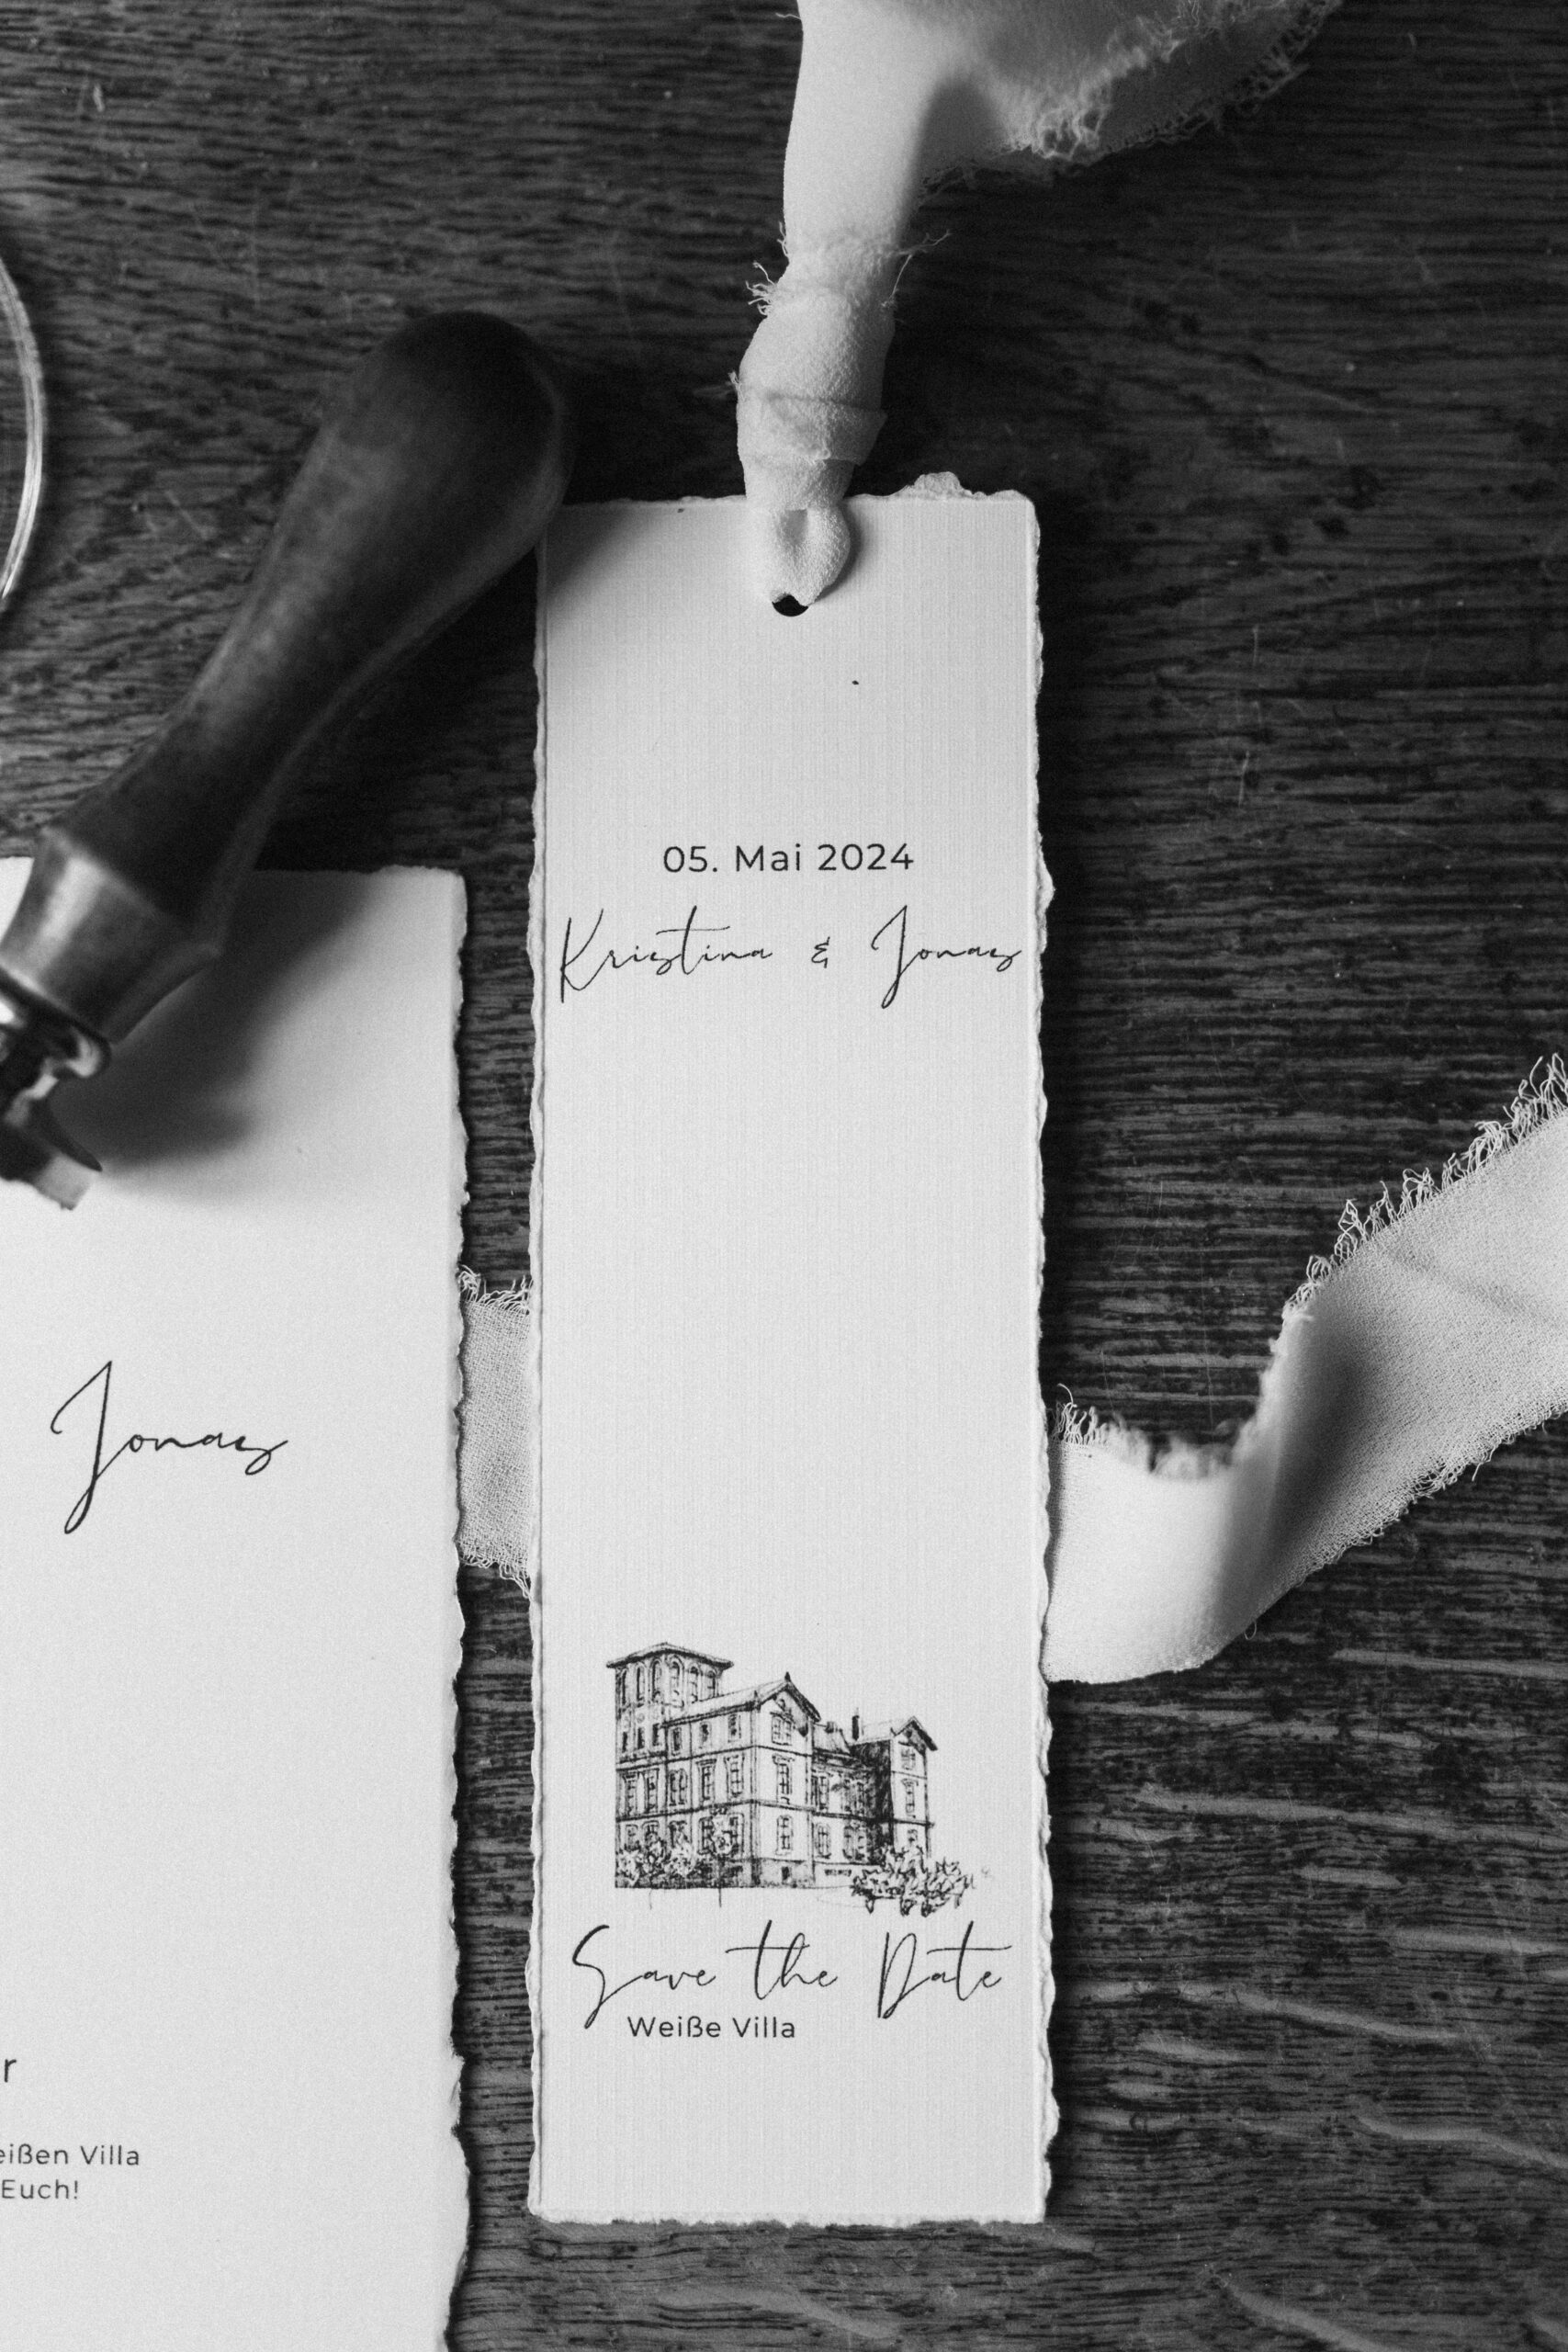 05. Mai 2024
Kristina & Jonas
Save the Date
Weiße Villa
Jonas
Villa
Euch!